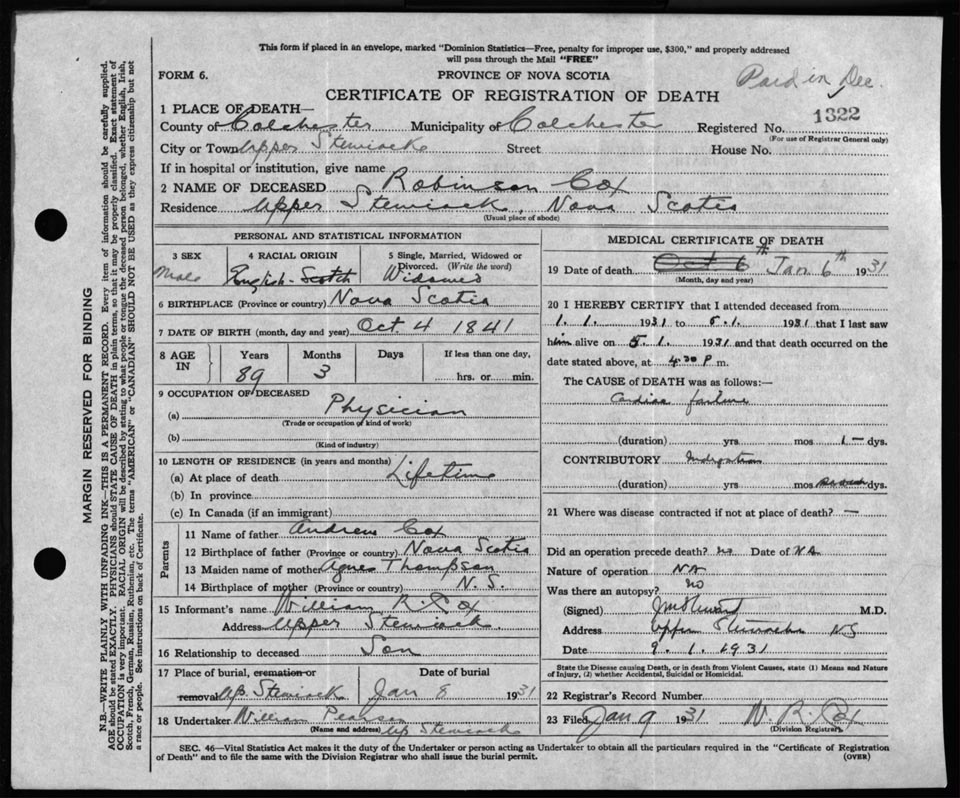 This form if placed in an envelope, marked "Dominion Statistics—Free, penalty for improper use, $300," and properly addressed
will pass through the Mail "FREE"
FORM 6.
PROVINCE OF NOVA SCOTIA
Paid in Dec.
CERTIFICATE OF REGISTRATION OF DEATH
1322
1 PLACE OF DEATH—
County of Colchester Municipality of Colchester Registered No.
(For use of Registrar General only)
City or Town Upper Stewiacke Street House No.
If in hospital or institution, give name
2 NAME OF DECEASED Robinson Cox
Residence Upper Stewiack, Nova Scotia
(Usual place of abode)
PERSONAL AND STATISTICAL INFORMATION
3 SEX 4 RACIAL ORIGIN 5 Single, Married, Widowed or
Divorced. (Write the word)
Male English-Scotch Widowed
6 BIRTHPLACE (Province or country) Nova Scotia
7 DATE OF BIRTH (month, day and year) Oct 4 1841
8 AGE IN Years Months Days If less than one day,
89 3 hrs. or min.
9 OCCUPATION OF DECEASED
(a) Physician
(Trade or occupation of kind of work)
(b)
(Kind of industry)
10 LENGTH OF RESIDENCE (in years and months)
(a) At place of death Lifetime
(b) In province
(c) In Canada (if an immigrant)
Parents
11 Name of father Andrew Cox
12 Birthplace of father (Province or country) Nova Scotia
13 Maiden name of mother Agnes Thompson
14 Birthplace of mother (Province or country) N.S.
15 Informant's name William R. Cox
Address Upper Stewiack.
16 Relationship to deceased Son
17 Place of burial, cremation or Date of burial
removal Up Stewiack Jan 8 1931
18 Undertaker William Pearson
(Name and address) Up Stewiacke
MEDICAL CERTIFICATE OF DEATH
19 Date of death Oct 6th Jan. 6th 1931
(Month, day and year)
20 I HEREBY CERTIFY that I attended deceased from
1.1. 1931 to 5.1. 1931 that I last saw
him alive on 5.1. 1931 and that death occurred on the
date stated above, at 4:30 P m.
The CAUSE of DEATH was as follows:—
Cardiac failure
(duration) yrs mos 1 – dys.
CONTRIBUTORY Indigestion
(duration) yrs mos dys.
21 Where was disease contracted if not at place of death? —
Did an operation precede death? no Date of N.A.
Nature of operation NA
Was there an autopsy? no
(Signed) M.D.
Address Upper Stewiacke NS
Date 9.1.1931
State the Disease causing Death, or in death from Violent Causes, state (1) Means and Nature
of Injury, (2) whether Accidental, Suicidal or Homicidal.
22 Registrar's Record Number
23 Filed Jan 9 1931 W. R. Cox
(Division Registrar)
SEC. 46—Vital Statistics Act makes it the duty of the Undertaker or person acting as Undertaker to obtain all the particulars required in the "Certificate of Registration
of Death" and to file the same with the Division Registrar who shall issue the burial permit.
(OVER)
MARGIN RESERVED FOR BINDING
N.B.—WRITE PLAINLY WITH UNFADING INK—THIS IS A PERMANENT RECORD. Every item of information should be carefully supplied.
AGE should be stated EXACTLY. PHYSICIANS should STATE CAUSE OF DEATH in plain terms, so that it may be properly classified. Exact statement of
OCCUPATION is very important. RACIAL ORIGIN will be described by stating to what people or tongue the deceased person belonged, whether English, Irish,
Scotch, French, German, Russian, Ruthenian, etc. The terms "AMERICAN" or "CANADIAN" SHOULD NOT BE USED as they express citizenship but not
a race or people. See instructions on back of Certificate.